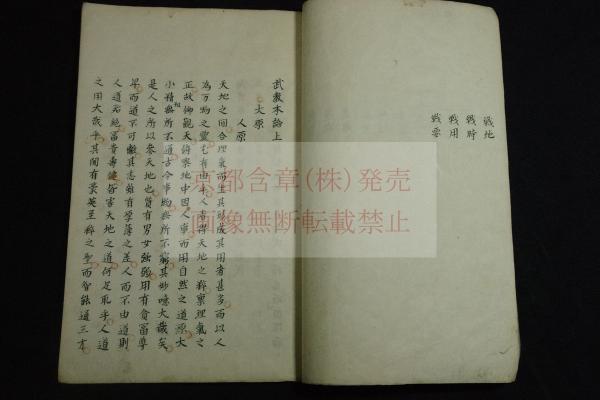 戰地
戰時
戰用
戰要
武教本論上
大原
人原
天地之間合理氣而生其形成其用者甚多而以人
為万物之靈也有由乎人者得天地之粹稟理氣之
正故仰觀天俯察地中因人事而用自然之道原大
小精粗無所不道古今事物無所不窮其妙噫大哉矣
是人之所以參天地也質有男女強弱用有貧富尊
卑而道不可離其志雖有厚薄之差人而不由道則
人道若絶富貴壽
天地之道何足取乎人道
之用大哉乎其間有豪英至粹之聖而智能通三才
京都含章(株)発売
画像無断転載禁止